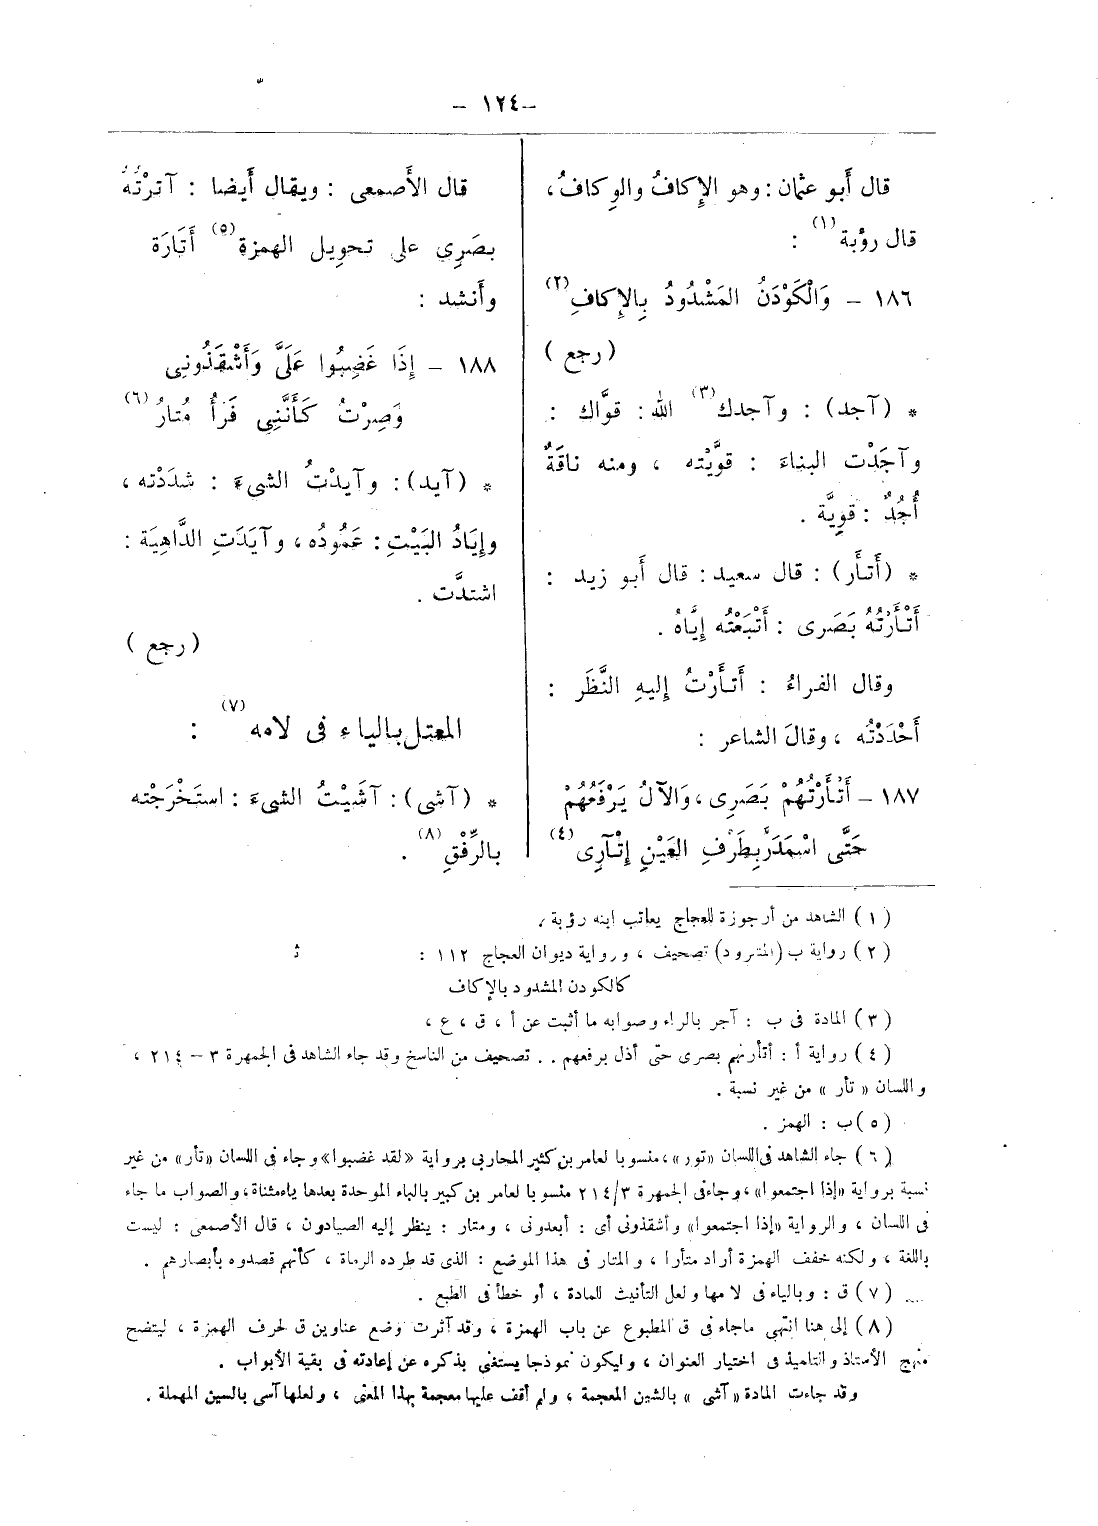 – ١٢٤ –
قال أَبو عثمان : وهو الإِكافُ والوِكافُ ،
قال رؤبة (١) :
١٨٦ – وَالْكَوْدَنُ المَشْدُودُ بِالإِكافِ (٢)
( رجع )
* (آجد) : وآجدك (٣) الله : قوَّاك :
وآجَدْت البناءَ : قوَّيْته ، ومنه ناقَةٌ
أُجُدٌ : قوِيَّة .
* (أَتأَر) : قال سعيد : قال أَبو زيد :
أَتْأَرْتُهُ بَصَرى : أَتْبَعْتُه إِيَّاهُ .
وقال الفراءُ : أَتأَرْتُ إِليهِ النَّظَر :
أَحْدَدْتُه ، وقالَ الشاعر :
١٨٧ – أَتْأَرْتُهُمْ بَصَرِى ، وَالآلُ يَرْفَعُهُمْ
حَتَّى اسْمَدَرَّ بِطَرْفِ العَيْنِ إِتْآرِى (٤)
قال الأَصمعى : ويقال أَيضا : آتَرْتُهُ
بصَرِي على تحوِيل الهمزة (٥) أَتَارَة
وأَنشد :
١٨٨ – إِذَا غَضِبُوا عَلَىَّ وَأَشْقَذُونِى
وَصِرْتُ كَأَنَّنِى فَرَأُ مُتارُ (٦)
* (آيد) : وآيدْتُ الشىءَ : شدَدْته ،
وإِيَادُ البَيْتِ : عَمُودُه ، وآيَدَتِ الدَّاهِيَة :
اشتدَّت .
( رجع )
المعتل بالياء فى لامه (٧) :
* (آشى) : آشَيْتُ الشىءَ : استَخْرَجْته
بالرِّفْقِ (٨) .
(١) الشاهد من أرجوزة للعجاج يعاتب ابنه رؤبة .
(٢) رواية ب (المترود) تصحيف ، ورواية ديوان العجاج ١١٢ :
كالكودن المشدود بالإكاف
(٣) المادة فى ب : آجر بالراء وصوابه ما أثبت عن أ ، ق ، ع ،
(٤) رواية أ : أتأرتهم بصرى حتى أذل يرفعهم . . تصحيف من الناسخ وقد جاء الشاهد فى الجمهرة ٣ – ٢١٤ ،
واللسان « تأر » من غير نسبة .
(٥) ب : الهمز .
(٦) جاء الشاهد فى اللسان «تور» ، منسوبا لعامر بن كثير المحاربى برواية «لقد غضبوا» وجاء فى اللسان «تأر» من غير
نسبة برواية «إذا اجتمعوا» ، وجاء فى الجمهرة ٢١٤/٣ منسوبا لعامر بن كبير بالباء الموحدة بعدها ياء مثناة ، والصواب ما جاء
فى اللسان ، والرواية «إذا اجتمعوا» وأشقذونى أى : أبعدونى ، ومتار : ينظر إليه الصيادون ، قال الأصمعى : ليست
باللغة ، ولكنه خفف الهمزة أراد متأرا ، والمتار فى هذا الموضع : الذى قد طرده الرماة ، كأنهم قصدوه بأبصارهم .
(٧) ق : وبالياء فى لامها ولعل التأنيث للمادة ، أو خطأ فى الطبع .
(٨) إلى هنا انتهى ماجاء فى ق المطبوع عن باب الهمزة ، وقد آثرت وضع عناوين ق لحرف الهمزة ، ليتضح
منهج الأستاذ والتلميذ فى اختيار العنوان ، وليكون نموذجا يستغنى بذكره عن إعادته فى بقية الأبواب .
وقد جاءت المادة « آشى » بالشين المعجمة ، ولم أقف عليها معجمة بهذا المعنى ، ولعلها آسى بالسين المهملة .